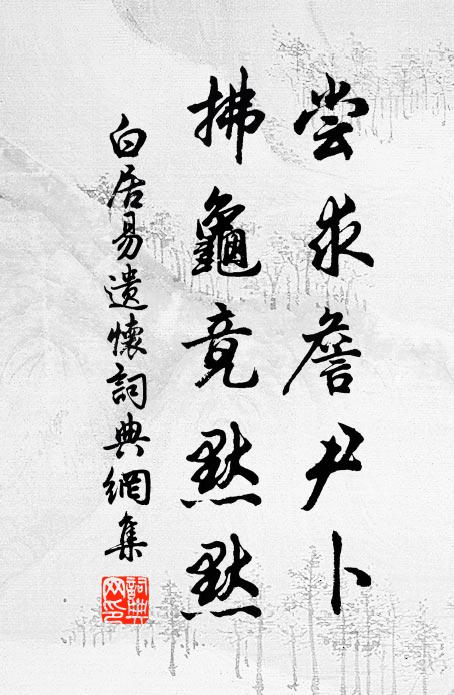 尝求詹尹卜
拂龜竟默默
白居易遣懷詞典網集
詞典
网印